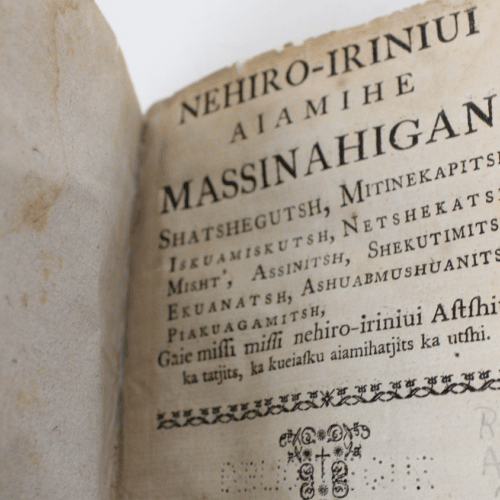 NEHIRO-IRINIUI
AIAMIHE
MASSINAHIGAN
SHATSHEGUTSH, MITINEKAPITSH
ISKUAMISKUTSH, NETSHEKATS
MISHT', ASSINITSH, SHEKUTIMITS
EKUANATSH, ASHUABMUSHUANITS
PIAKUAGAMITSH,
Gaie miſſi miſſi nehiro-iriniui Aſtſhi
ka tatjits, ka kueiaſku aiamihatjits ka utſhi.